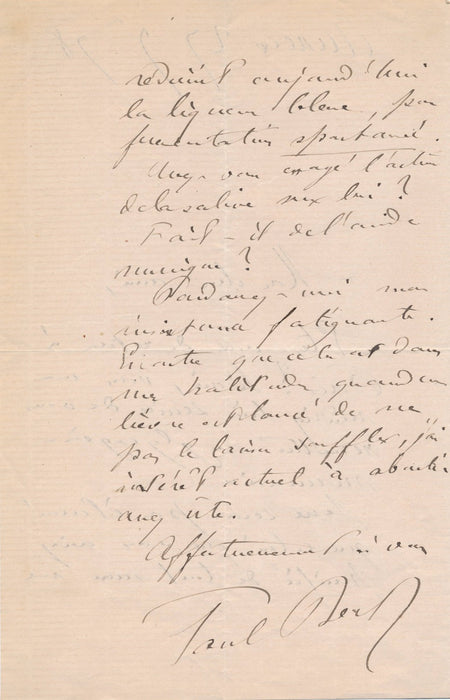 réduirait aujourd'hui
la liqueur bleue, par
fermentation spontanée.
Avez-vous essayé l'action
de la salive sur lui ?
Fait-il de l'acide
mucique ?
Pardonnez-moi mon
insistance fatigante.
Encontre que cela est dans
mes habitudes quand un
lièvre est lancé de ne
pas le laisser souffler, j'ai
intérêt actuel à aboutir
assez vite.
Affectueusement à vous
Paul Bert